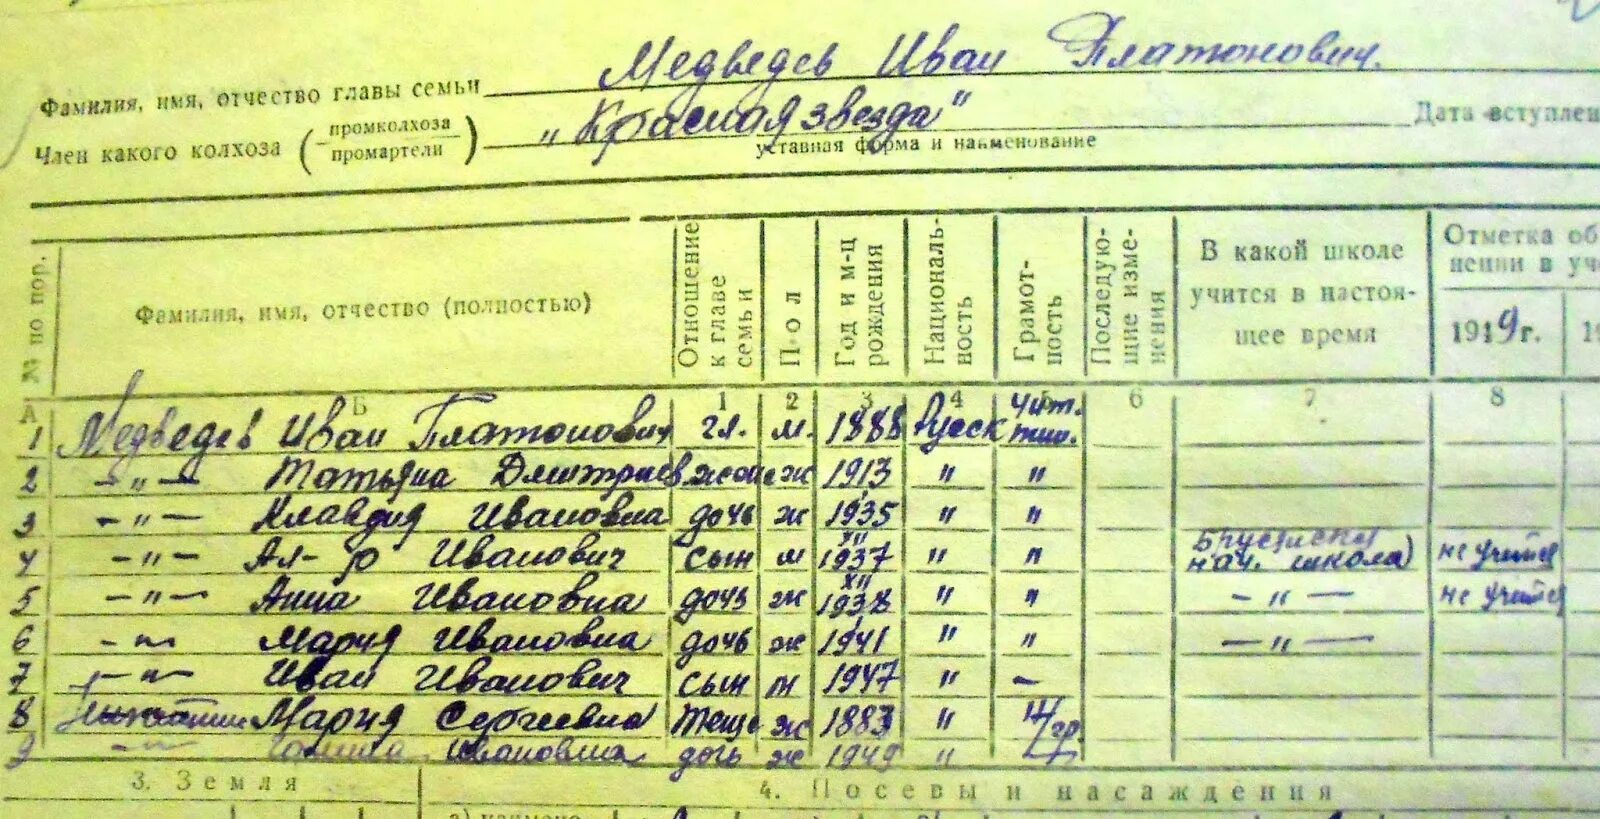 Медведев Иван Платонович.
Фамилия, имя, отчество главы семьи
Член какого колхоза (промколхоза / промартели) „Красная звезда" Дата вступлен
уставная форма и наименование
№ по пор. Фамилия, имя, отчество (полностью) Отношение к главе семьи Пол Год и м-ц рождения Националь-ность Грамот-ность Последую-щие изме-нения В какой школе учится в настоя-щее время Отметка об нении в уч 1949 г. 1
А Б 1 2 3 4 5 6 7 8
1 Медведев Иван Платонович гл. м. 1888 Русск чит. пис.
2 -"- Татьяна Дмитриев жена ж 1913 " "
3 -"- Клавдия Ивановна дочь ж 1935 " "
4 -"- Ал-р Иванович сын м XII 1937 " " нач. школа не учится
5 -"- Анна Ивановна дочь ж XII 1938 " " -"- не учится
6 -"- Мария Ивановна дочь ж 1941 " " -"-
7 -"- Иван Иванович сын м 1947 " -
8 Мария Сергеевна теща ж 1883 " н/гр.
9 -"- Галина Ивановна дочь ж 1949 "
3. Земля 4. Посевы и насаждения